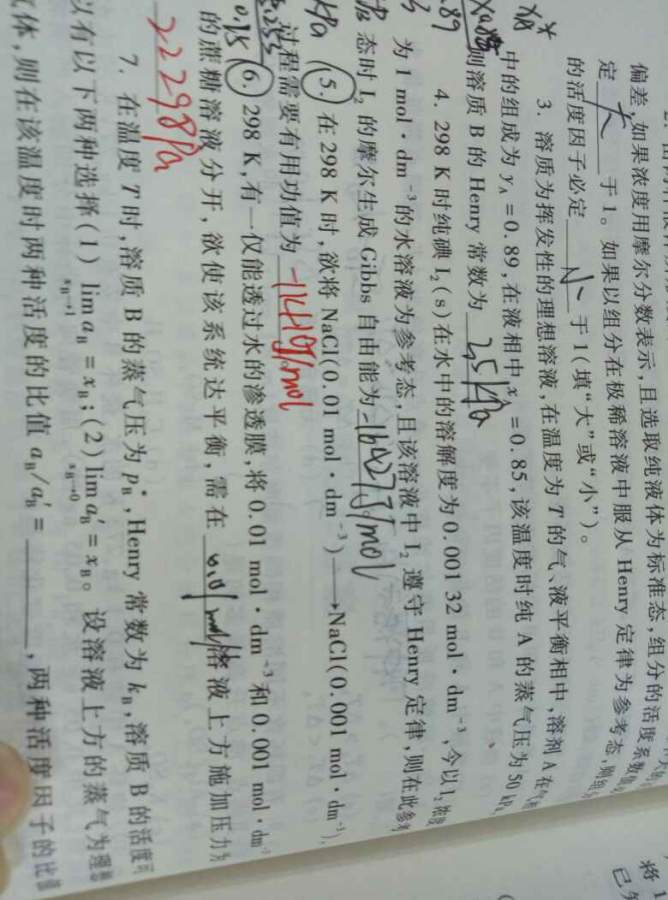 偏差,如果浓度用摩尔分数表示,且选取纯液体为标准态,组分的活度系数
定 大 于1。如果以组分在极稀溶液中服从 Henry 定律为参考态,则组
的活度因子必定 小 于1(填“大”或“小”)。
3. 溶质为挥发性的理想溶液,在温度为 T 的气、液平衡相中,溶剂 A 在
中的组成为 yA = 0.89,在液相中 xA = 0.85,该温度时纯 A 的蒸气压为 50 kPa,
则溶质 B 的 Henry 常数为 35kPa
4. 298 K 时纯碘 I₂(s)在水中的溶解度为 0.001 32 mol·dm⁻³,今以 I₂ 浓度
为 1 mol·dm⁻³的水溶液为参考态,且该溶液中 I₂ 遵守 Henry 定律,则在此参考
态时 I₂ 的摩尔生成 Gibbs 自由能为 -16427J/mol
5. 在 298 K 时,欲将 NaCl(0.01 mol·dm⁻³)⟶NaCl(0.001 mol·dm⁻³),
过程需要有用功值为 -11419J/mol
6. 298 K,有一仅能透过水的渗透膜,将 0.01 mol·dm⁻³和 0.001 mol·dm⁻³
的蔗糖溶液分开,欲使该系统达平衡,需在 溶液上方施加压力为
22298Pa
7. 在温度 T 时,溶质 B 的蒸气压为 pB*,Henry 常数为 kB,溶质 B 的活度可
以有以下两种选择(1) lim aB = xB;(2) lim a′B = xB。设溶液上方的蒸气为理想
xB→1 xB→0
气体,则在该温度时两种活度的比值 aB/a′B = ______,两种活度因子的比值